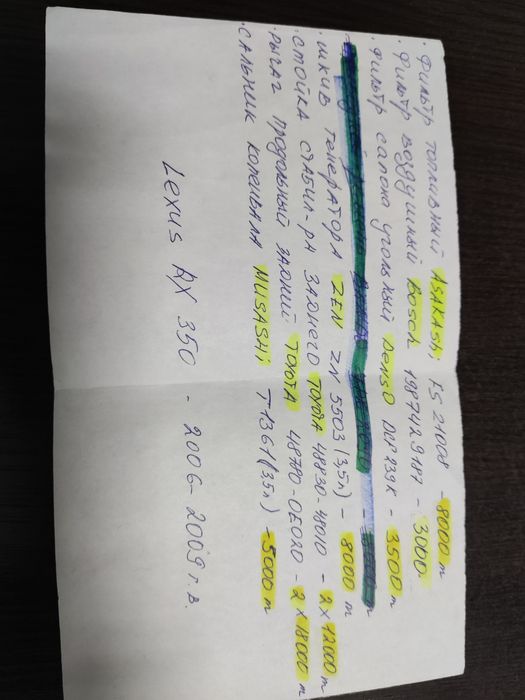 · Фильтр топливный ASAKASHI, FS 21008 - 8000 т
· Фильтр воздушный Bosch 1987429187 - 3000
· Фильтр салона угольный Denso DCF239K - 3500 т
· шкив генератора ZEN ZN 5503 (3,5л) - 8000 т
· стойка стабил-ра заднего TOYOTA 48830-48010 - 2 х 12000 т
· рычаг продольный задний TOYOTA 48780-0E020 - 2 х 18000 т
· сальник коленвала MUSASHI T1361 (3,5л) - 5000 т
Lexus RX 350 - 2006-2009 г.в.